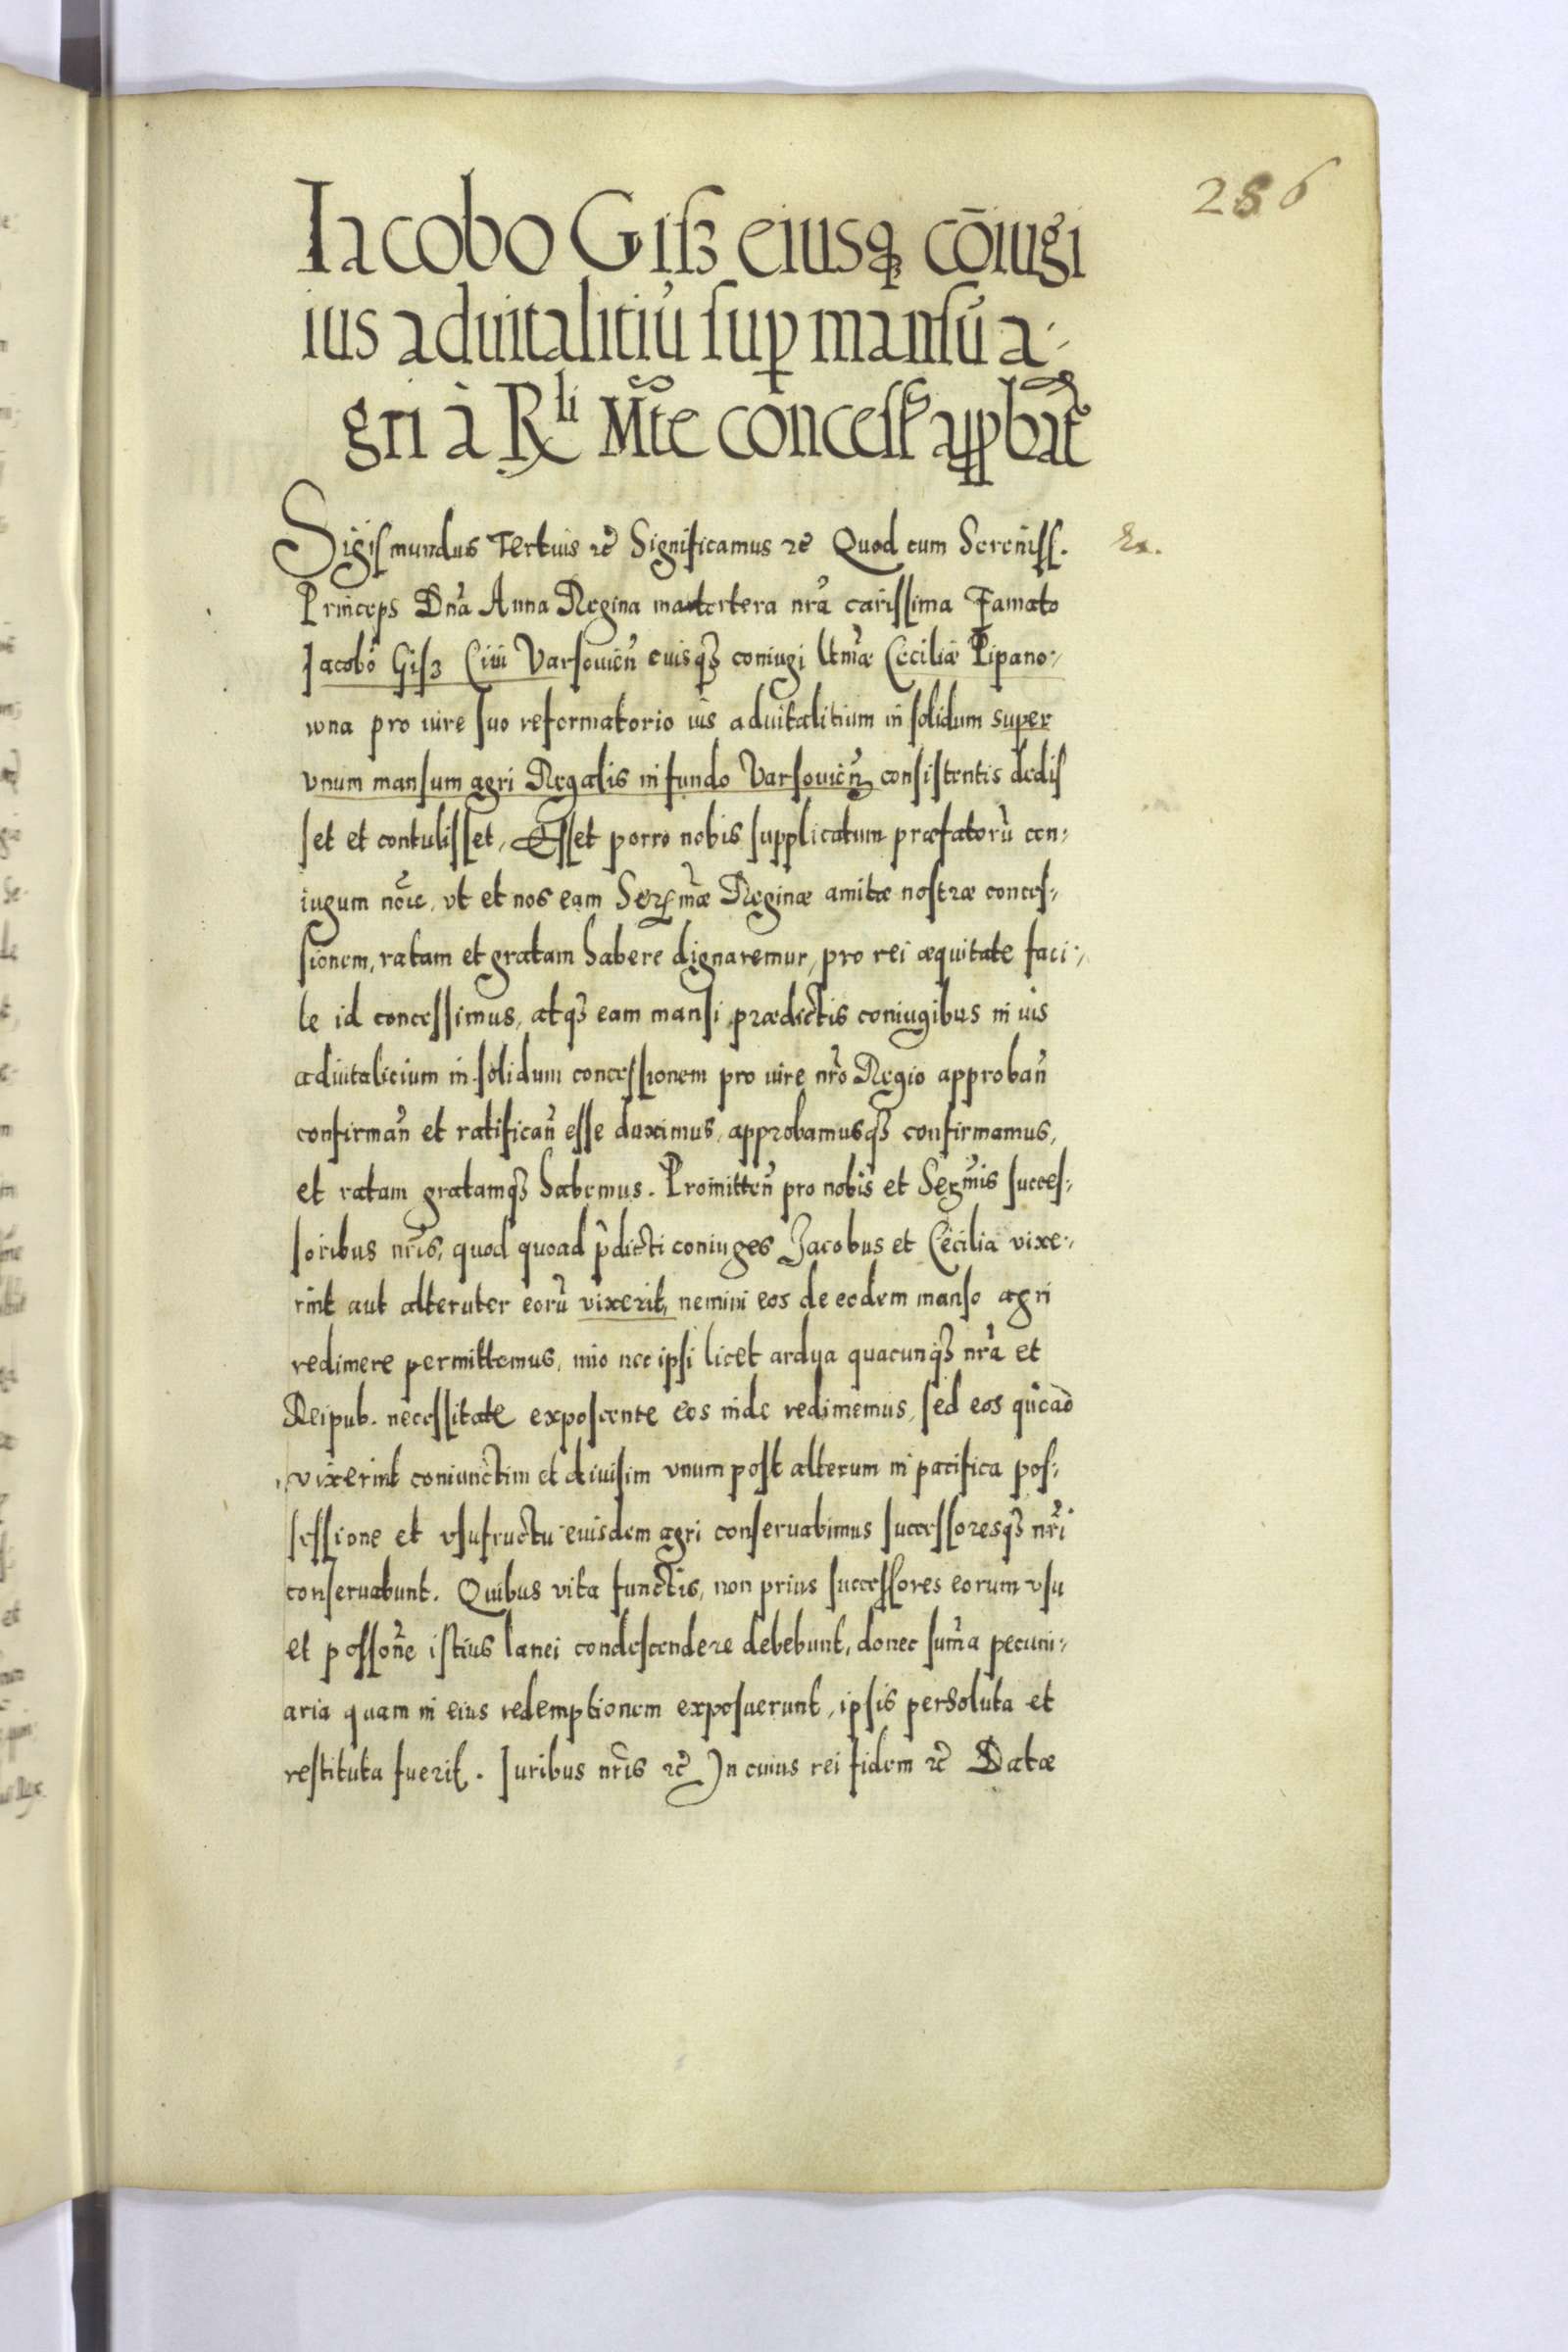 286
Iacobo Gisz eiusq cōiugi
ius aduitalitiū sup mansū a-
gri à Rli Mte concess appbat
Sigismundus Tertius etc Significamus etc Quod cum Sereniss.
Ex.
Princeps Dna Anna Regina matertera nra carissima Famato
Jacobo Gisz Ciui Varsouien eiusqз coniugi ltmæ Cæciliæ Pipano-
wna pro iure suo reformatorio ius aduitalitium in solidum super
vnum mansum agri Regalis in fundo Varsouien consistentis dedis
set et contulisset, Esset porro nobis supplicatum præfatorū con-
iugum noīe, vt et nos eam Sermæ Reginæ amitæ nostræ conces-
sionem, ratam et gratam habere dignaremur, pro rei æquitate faci-
le id concessimus, atqз eam mansi prædictis coniugibus in ius
aduitalicium in solidum concessionem pro iure nro Regio approban
confirman et ratifican esse duximus, approbamusqз confirmamus,
et ratam gratamqз habemus. Promitten pro nobis et Sermis succes-
soribus nris, quod quoad pdicti coniuges Jacobus et Cæcilia vixe-
rint aut alteruter eorū vixerit, nemini eos de eodem manso agri
redimere permittemus, imo nec ipsi licet ardua quacunqз nra et
Reipub. necessitate exposcente eos inde redimemus, sed eos quoad
vixerint coniunctim et diuisim vnum post alterum in pacifica pos-
sessione et vsufructu eiusdem agri conseruabimus successoresqз nri
conseruabunt. Quibus vita functis, non prius successores eorum vsu
et possone istius lanei condescendere debebunt, donec suma pecuni-
aria quam in eius redemptionem exposuerunt, ipsis persoluta et
restituta fuerit. Iuribus nris etc In cuius rei fidem etc Datæ